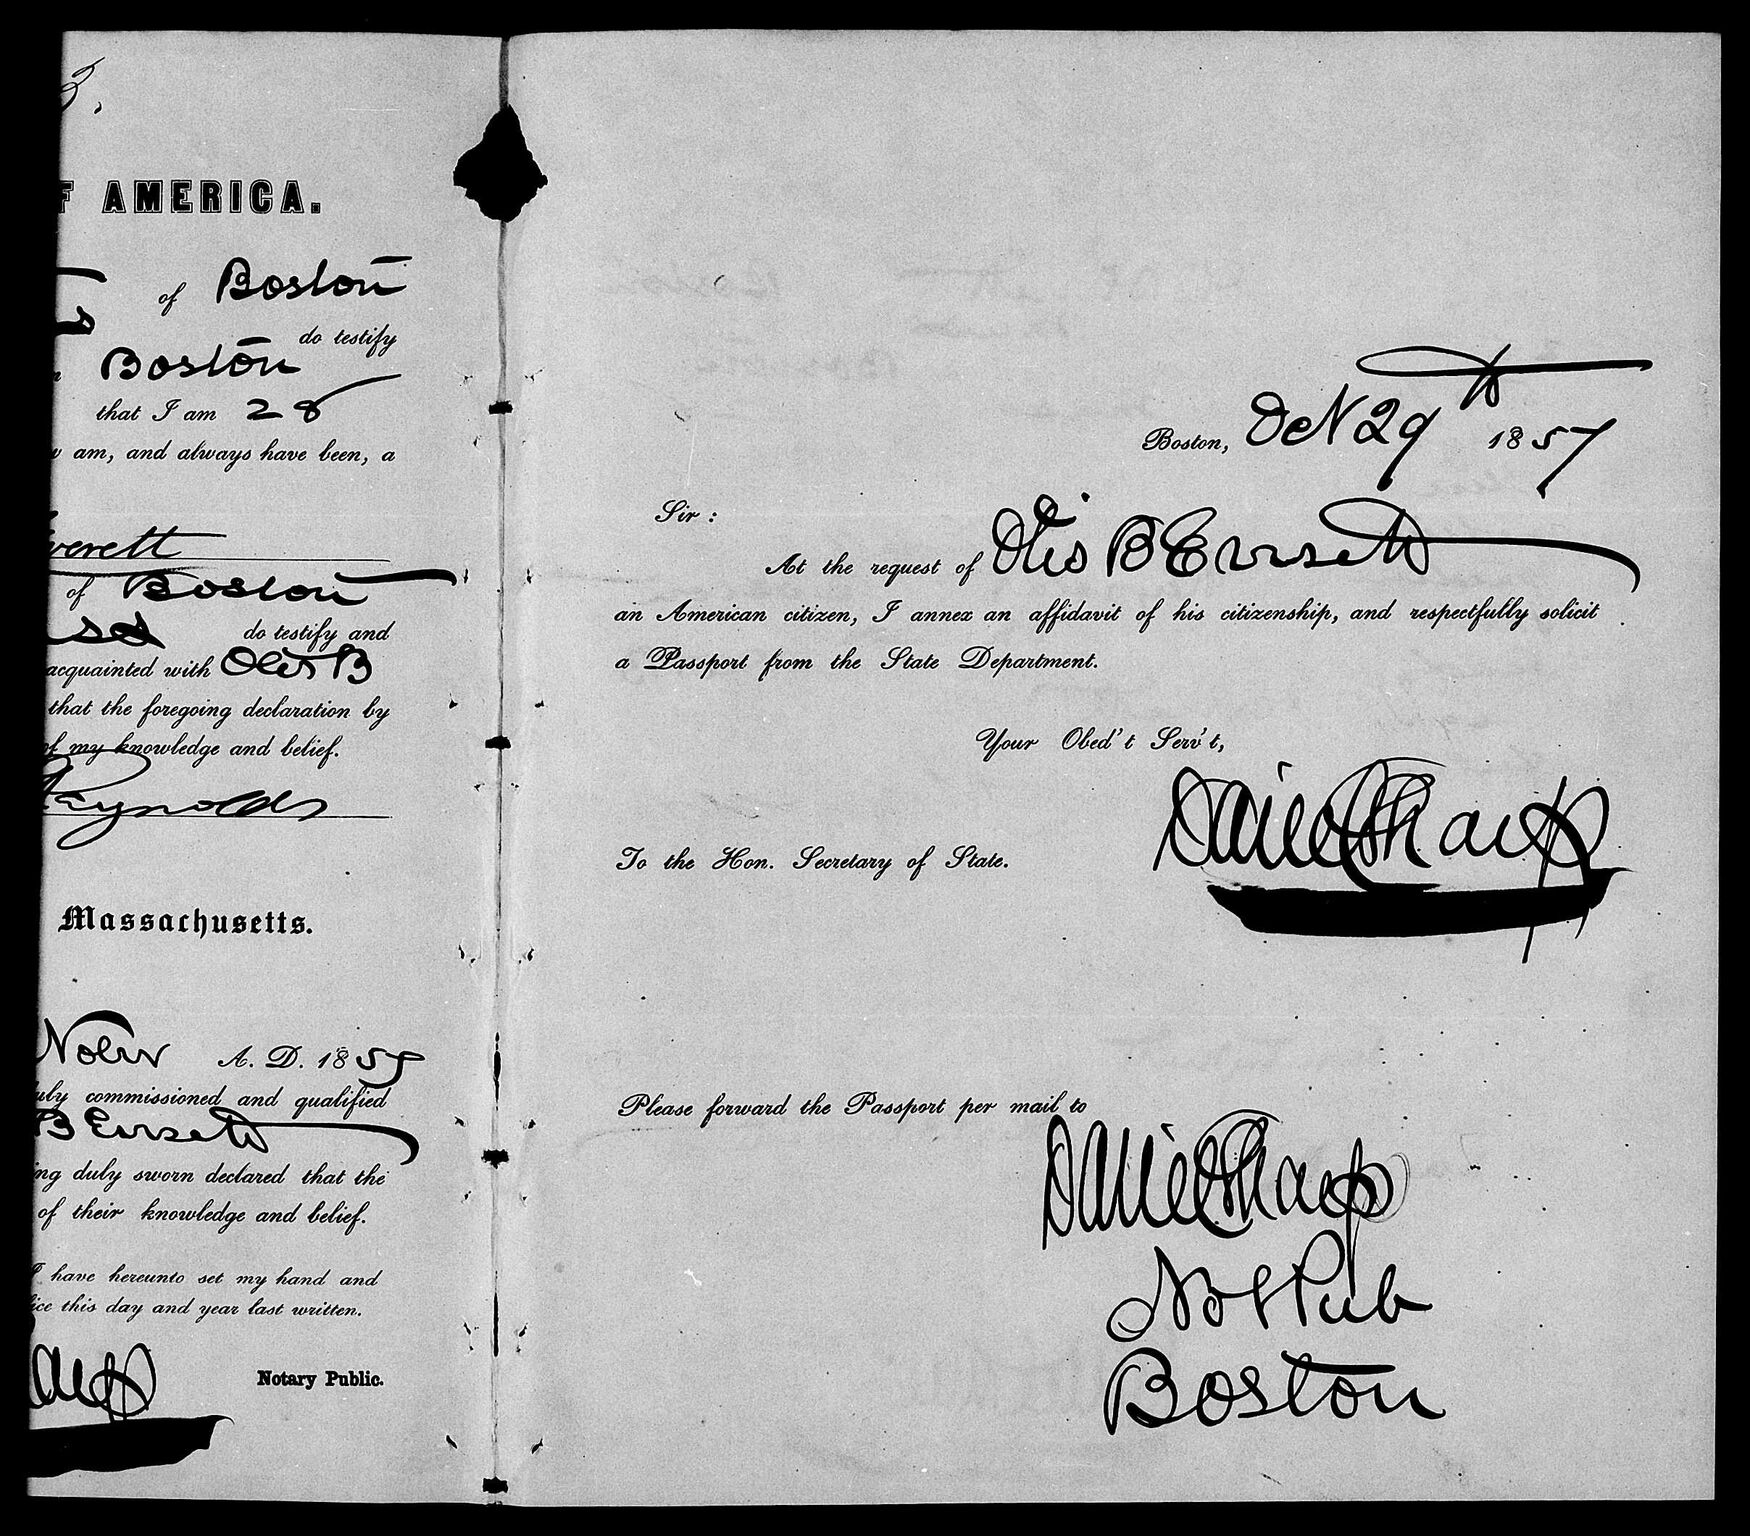 3.
F AMERICA.
of Boston
do testify
Boston
that I am 28
am, and always have been, a
verett
of Boston
do testify and
acquainted with Otis B
that the foregoing declaration by
of my knowledge and belief.
Reynolds
Massachusetts.
Novr A. D. 1857
uly commissioned and qualified
B Everett
ing duly sworn declared that the
of their knowledge and belief.
I have hereunto set my hand and
ice this day and year last written.
Notary Public.
Boston, Oct 29th 1857
Sir :
At the request of Otis B Everett
an American citizen, I annex an affidavit of his citizenship, and respectfully solicit
a Passport from the State Department.
Your Obed't Serv't,
Daniel Sharp
To the Hon. Secretary of State.
Please forward the Passport per mail to
Daniel Sharp
Not Pub
Boston